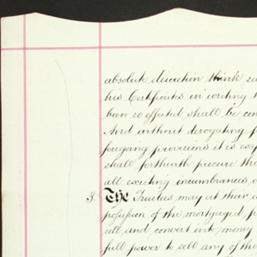 absolute discretion think
his Certificates in writing
been so effected shall be
And without derogating
foregoing provisions it is
shall forthwith procure the
all existing incumbrances
3. The Trustees may at their
possession of the mortgaged
sell and convert into money
full power to sell any of the